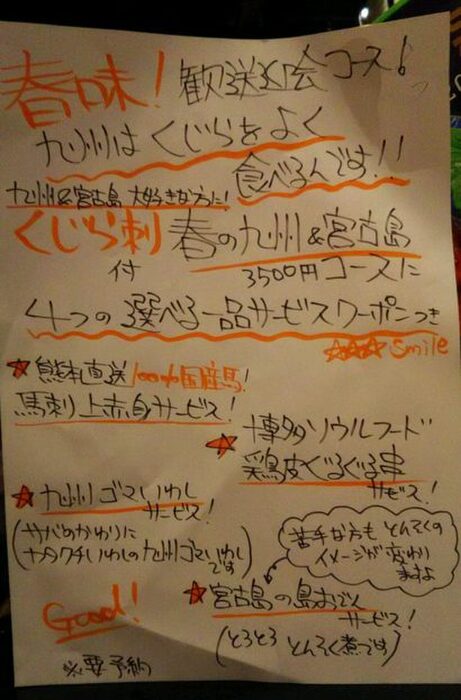 春味! 歓送迎会コース!
九州はくじらをよく
食べるんです!!
九州&宮古島 大好きな方に!
くじら刺 春の九州&宮古島
付 3500円コースに
4つの選べる一品サービスクーポンつき
☆☆☆ smile
★熊本直送100%国産馬!
馬刺上赤身サービス!
★博多ソウルフード
鶏皮ぐるぐる串
サービス!
★九州ゴマいわし
サービス!
(サバのかわりに
ナタクチいわしの九州ゴマいわし
です)
苦手な方もとんそくの
イメージが変わり
ますよ
★宮古島の島おでん
サービス!
(とろとろ とんそく煮です)
Good!
※要予約